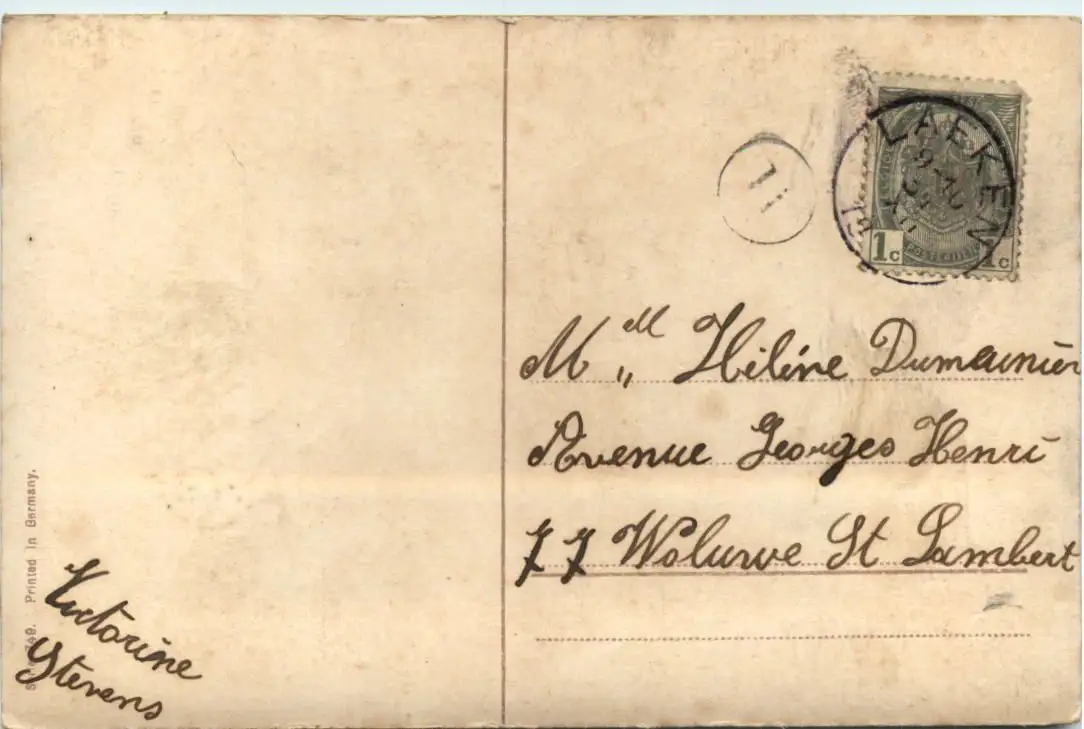 LAEKEN
9-10
1c
POSTERIJEN
1c
11
Mll Hilène Dumaunier
Avenue Georges Henri
77 Woluwe St Lambert
Printed in Germany.
Victorine
Stevens